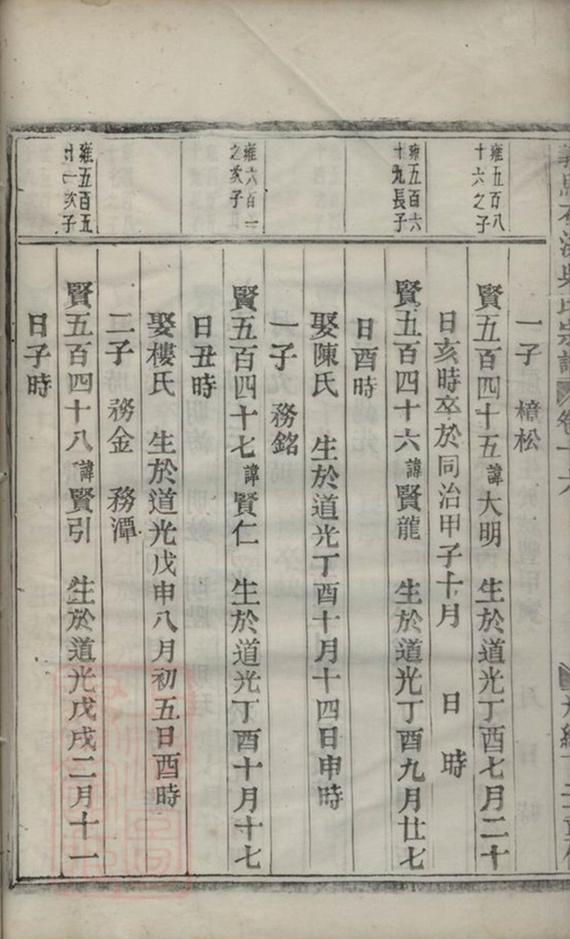 一子　樟松
雍五百八
十六之子
賢五百四十五諱大明　生於道光丁酉七月二十
日亥時卒於同治甲子十月　日　時
雍五百六
十九長子
賢五百四十六諱賢龍　生於道光丁酉九月廿七
日酉時
娶陳氏　生於道光丁酉十月十四日申時
一子　務銘
雍六百一
之次子
賢五百四十七諱賢仁　生於道光丁酉十月十七
日丑時
娶樓氏　生於道光戊申八月初五日酉時
二子　務金　務潭
雍五百五
廿一次子
賢五百四十八諱賢引　生於道光戊戌二月十一
日子時